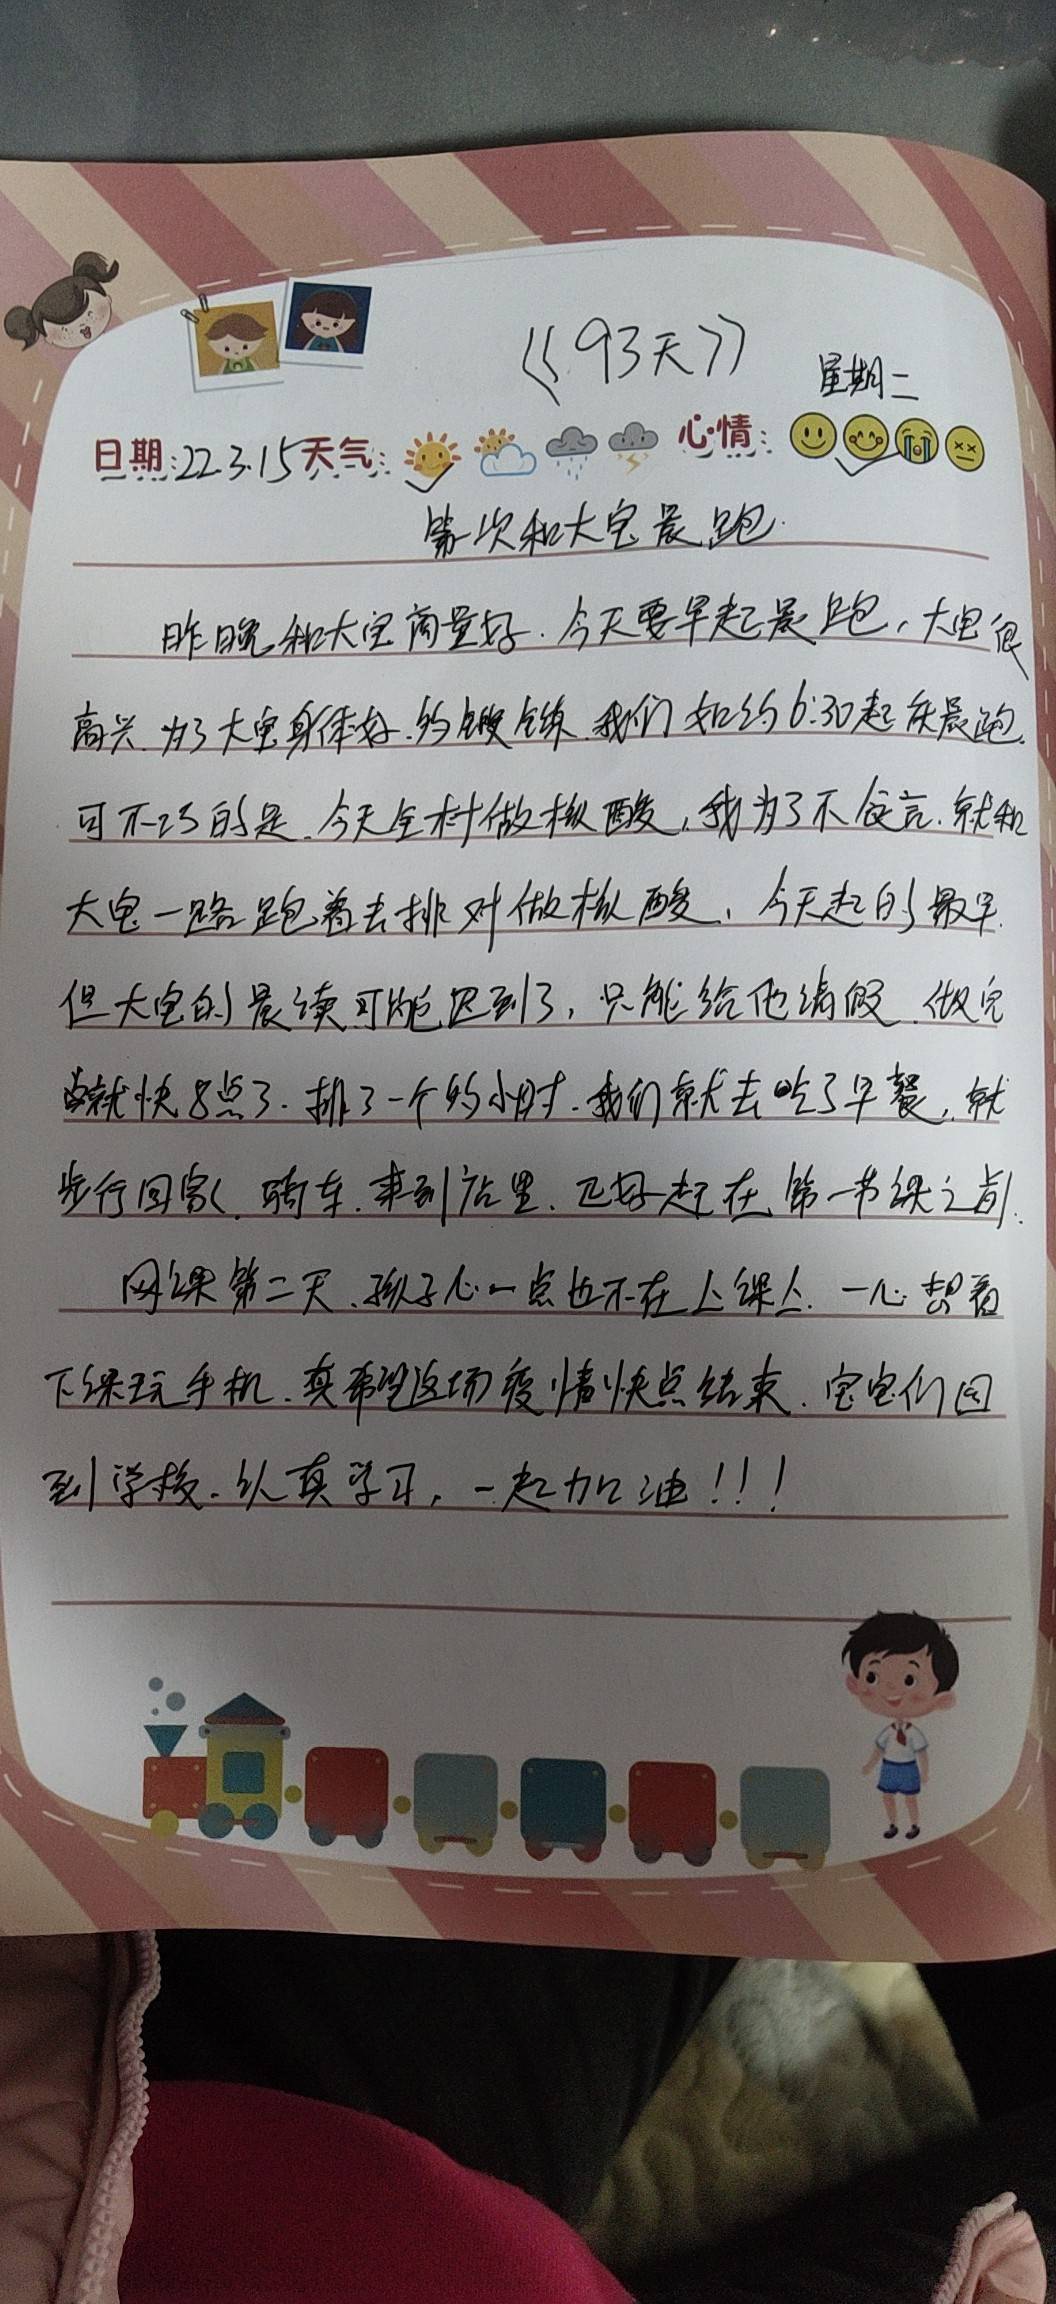 《93天》
星期二
日期:22.3.15天气: 心情:
第次和大宝晨跑.
昨晚和大宝商量好.今天要早起晨跑,大宝很
高兴.为了大宝身体好.的锻练.我们如约6:30起床晨跑.
可不巧的是.今天全村做核酸,我为了不食言.就和
大宝一路跑着去排对做核酸,今天起的最早.
但大宝的晨读可能迟到了,只能给他请假.做完
就快8点了.排了一个的小时.我们就去吃了早餐,就
步行回家.骑车.来到店里.正好赶在第一节课之前.
网课第二天.孩子心一点也不在上课上.一心想着
下课玩手机.真希望这场疫情快点结束.宝宝们回
到学校.认真学习,一起加油!!!